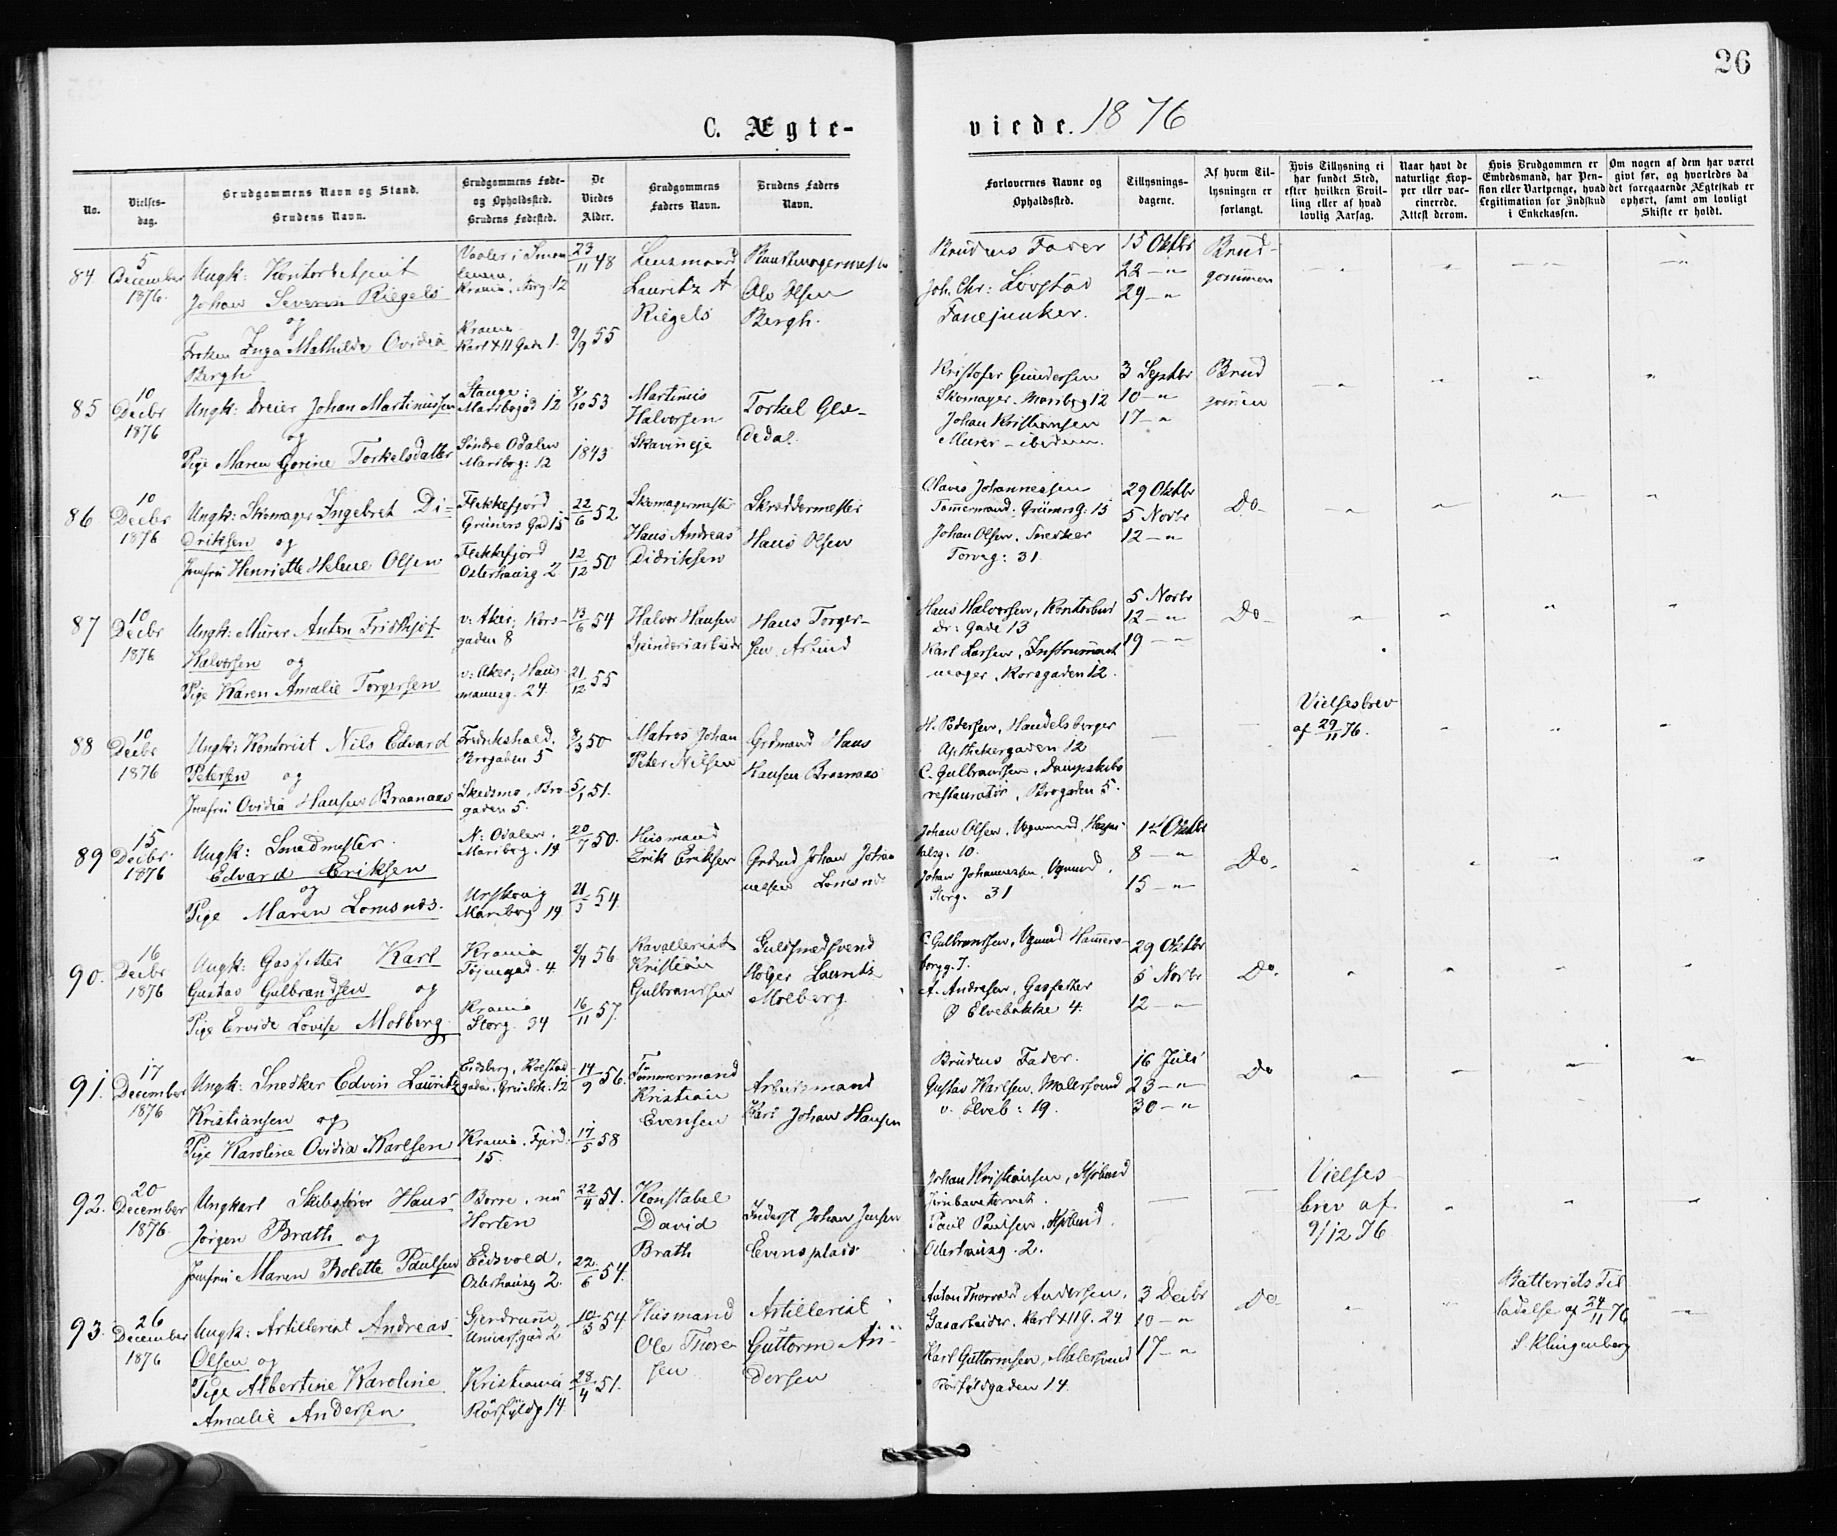 26
C. Ægte-
viede. 1876
No.
Vielses-
dag.
Brudgommens Navn og Stand.
Brudens Navn.
Brudgommens Føde-
og Opholdssted.
Brudens Fødested.
De
Viedes
Alder.
Brudgommens
Faders Navn.
Brudens Faders
Navn.
Forlovernes Navne og
Opholdssted.
Tillysnings-
dagene.
Af hvem Til-
lysningen er
forlangt.
Hvis Tillysning ei
har fundet Sted,
efter hvilken Bevil-
ling eller af hvad
lovlig Aarsag.
Naar havt de
naturlige Kop-
per eller vac-
cinerede.
Attest derom.
Hvis Brudgommen er
Embedsmand, har Pen-
sion eller Vartpenge, hvad
Legitimation for Indskud
i Enkekassen.
Om nogen af dem har været
givt før, og hvorledes da
det foregaaende Ægteskab er
ophørt, samt om lovligt
Skifte er holdt.
84
5
December
1876
Ungk: Kontorbetjent
Johan Severin Riegels
og
Frøken Inga Mathilde Ovidia
Bergh
Vaaler i Smaa-
lenene
Krania, Storg: 12
Krania
Karl XII Gade 1.
23/11 48
9/9 55
Lensmand
Lauritz A
Riegels
Olv Olsen
Bergh.
Brudens Fader
Joh. Chr: Løvstad
Fanejunker.
15 Oktbr
22 - "
29 - "
Brud-
gommen
85
10
Decbr
1876
Ungk: Dreier Johan Martinussen
og
Pige Maren Gorine Torkelsdatter
Stange;
Maribogad 12
Søndre Odalen
Маribog: 12
8/10 53
1843
Martinus
Halvorsen
Skavineje
Torkel Glæ-
dedal.
Kristofer Gundersen
Skomager. Maribog 12
Johan Kristiansen
Murer - ibidem.
3 Septbr
10 - "
17 - "
Brud
gomen
86
10
Decbr
1876
Ungk: Skomager Ingebret Di-
driksen og
Jomfru Henriette Helene Olsen
Flekkefjord
Grüners Gad 15
Flekkefjord
Osterhausg 2
22/6 52
12/12 50
Skomagermester
Hans Andreas
Didriksen
Skræddermester
Hans Olsen
Claus Johannessen
Tømmermand. Grünersg: 15
Johan Olsen, Snedker
Torvg: 31
29 Oktbr
5 Novbr
12 - "
Do
87
10
Decbr
1876
Ungk: Murer Anton Fridthjof
Halvorsen og
Pige Karen Amalie Torgersen
v: Aker, Kors-
gaden 8
v: Aker, Haus-
mannsg. 24
13/6 54
21/12 55
Halvor Hansen
Spinderiarbeider
Hans Torger-
sen Asund
Hans Halvorsen, Kontorbud
Dr: Gade 13
Karl Larsen, Instrument
mager, Korsgaden 12.
5 Novbr
12 - "
19 - "
Do
88
10
Decbr
1876
Ungk: Kontorist Nils Edvard
Petersen og
Jomfru Ovidia Hansen Braanaas
Fredrikshald,
Brogaden 5
Skedsmo, Bro-
gaden 5.
8/3 50
5/1 51.
Matros Johan
Peter Nilsen
Grdmand Hans
Hansen Braanaas
H. Pedersen, Handelsborger
Apothekergaden 12
C. Gulbrandsen, Dampskibs
restauratør, Brogaden 5.
Vielsesbrev
af 29/11 76.
89
15
Decbr
1876
Ungk: Smedmester
Edvard Eriksen
og
Pige Maren Lomsnes.
N: Odalen,
Maribog. 19
Urskoug
Maribog 19
20/7 50.
21/3 54
Husmand
Erik Eriksen
Grdmd Johan Johan
nessen Lomsnes
Johan Olsen, Vognmand, Hospi-
talsg. 10.
Johan Johannessen, Vgnmd,
Storg. 31
1ste Oktbr
8 - "
15 - "
Do
90.
16
Decbr
1876
Ungk: Gasfitter Karl
Gustav Gulbrandsen og
Pige Ervide Lovise Molberg
Krania
Tøiengad. 4
Krania
Storg. 34
2/4 56.
16/11 57.
Kavallerist
Kristian
Gulbrandsen
Guldsmedsvend
Holger Laurits
Molberg.
C. Gulbrandsen, Vgnmd Hamers-
borgg. 7.
A. Andresen, Gasfitter
Ø Elvebakke 4.
29 Oktbr
5 Novbr
12 - "
Do
91.
17
December
1876
Ungk: Snedker Edvin Lauritz
Kristiansen og
Pige Karoline Ovidia Karlsen
Eidsberg, Kolstad
gaden, Grünlk. 12
Krania, Fjerd:
15.
14/9 56.
17/5 58
Tømmermand
Kristian
Evensen
Arbeidsmand
Karl Johan Hansen
Brudens Fader.
Gustav Karlsen, Malersvend
v. Elveb: 19.
16 Juli
23 - "
30 - "
Do
92.
20
December
1876
Ungkarl Skibsfører Hans
Jørgen Brath og
Jomfru Maren Bolette Paulsen
Borre, nu
Horten
Eidsvold,
Osterhausg 2.
22/4 51.
22/6 54.
Konstabel
David
Brath
Inderst Johan Jensen
Evensplads
Johan Kristiansen, Hjulmd
Jernbanetorvet.
Paul Paulsen, Hjulmd
Osterhausg. 2.
Vielses
brev af
9/12 76
93.
26
December
1876
Ungk: Artillerist Andreas
Olsen og
Pige Albertine Karoline
Amalie Andersen
Gjerdrum
Universgad 2
Kristiania
Rørfyldg 14
10/3 54
28/4 51.
Husmand
Ole Thore-
sen
Artillerist
Guttorm An-
dersen
Anton Thorvald Andersen,
Gasarbeider. Karl XII G. 24
Karl Guttormsen, Malersvend
Rørfyldgaden 14.
3 Decbr
10 - "
17 - "
Do
Batteriets Til
ladelse af 24/11 76
S. Klingenberg